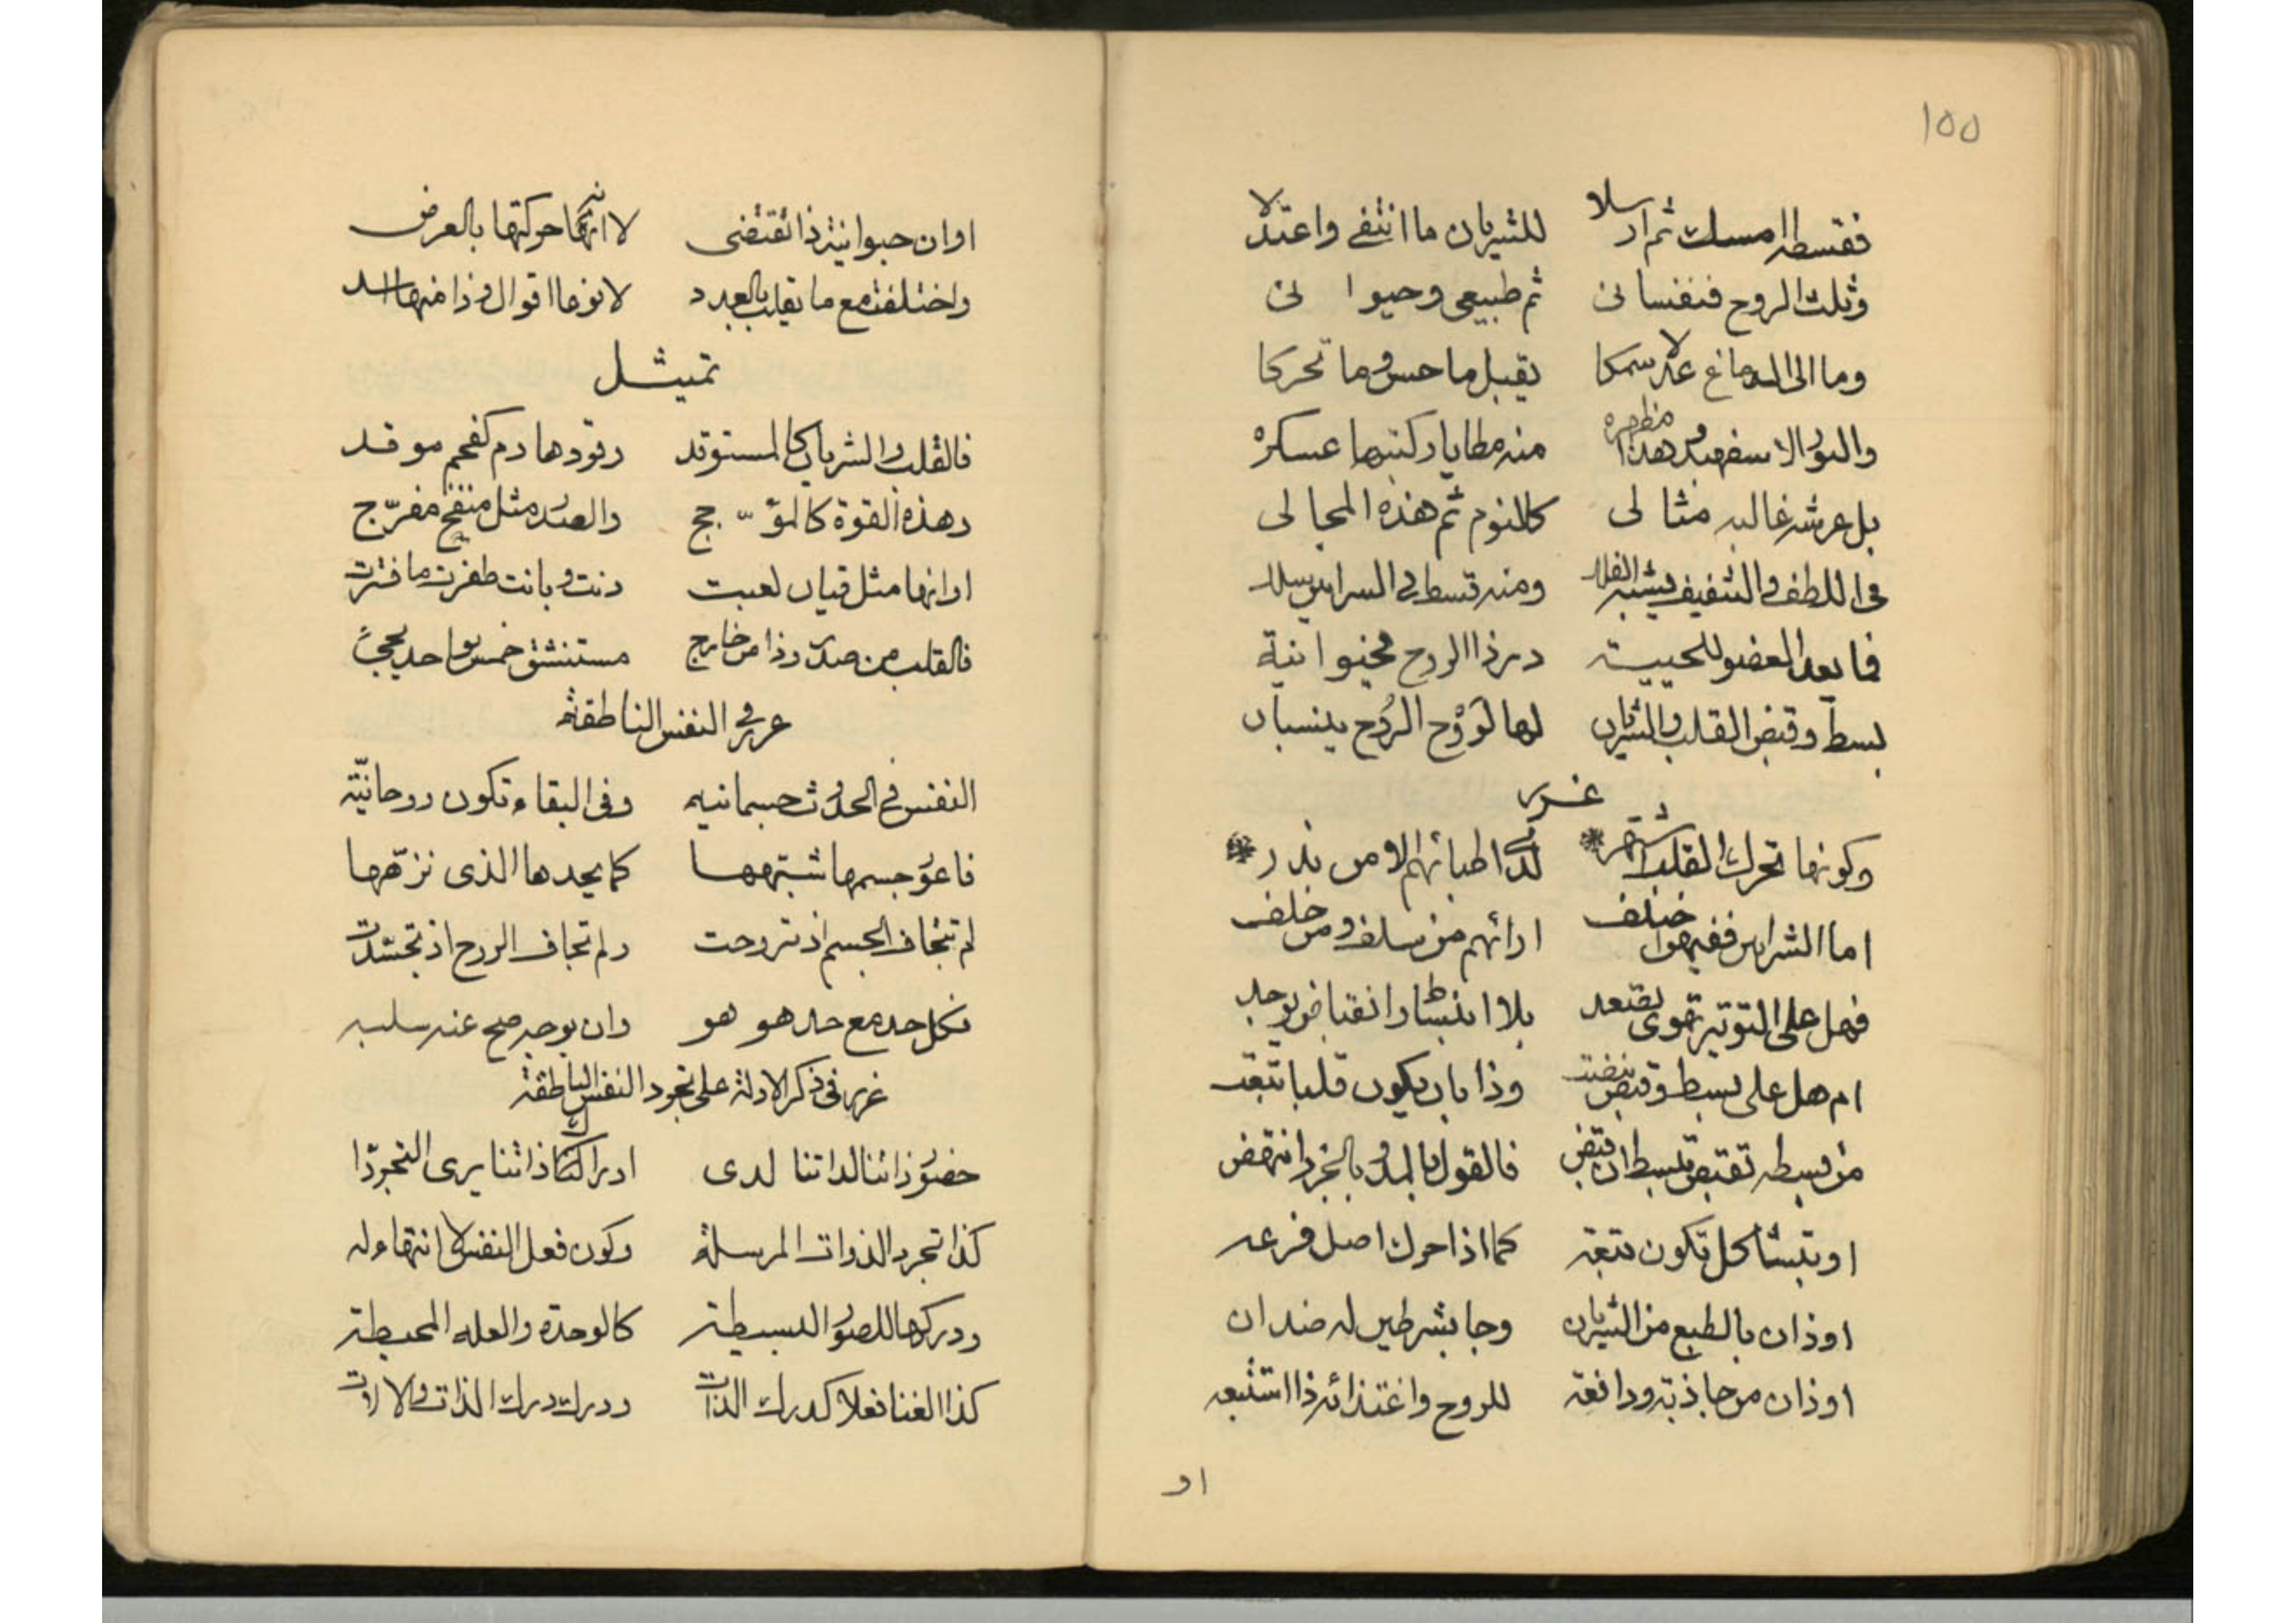 ١٥٥
فقسطه امسك ثم ارسلا للشريان ما انتفى واعتدلا
وثلث الروح فنفسانى ثم طبيعى وحيوانى
وما الى الدماغ علا سمكا يقبل ما حس وما تحركا
والنور الاسفهبد هذا مظهره منه مطايا ركبتها عسكره
بل عرشه غالبه مثالى كالنوم ثم هذه المجالى
فى اللطف والشفيف يشبه الفلك ومنه قسط فى السرايين سلك
فما يعد العضو للحييية در ذا الروح فحيوانية
بسط وقبض القلب والشريان لها لروح الروح ينسبان
غرر
وكونها تحرك القلب اشتهر لدى اطبائهم الا من ندر
اما الشرايين ففيها اختلف ارائهم من سلف ومن خلف
فهل على التوتير قوى يقتعد بلا انبساط وانقباض يوجد
ام هل على بسط وقبض نبضت وذا بان يكون قلبا تبعت
من بسطه تقبض تبسط ان قبض فالقول بالمد وبالجزر انتهض
او بتشاكل تكون تبعه كما اذا حرك اصل فرعه
او ذان بالطبع من الشريان وجا بشرطين له ضدان
او ذان من جاذبة ودافعة للروح واغتذائه ذا استتبعه
او
او ان حيوانية ذا تقتضى لا انها حركتها بالعرض
واختلفت مع ما يقلب بالعدد لا نوعا اقوال وذا منها اسد
تمثيل
فالقلب والشريان كالمستوقد وقودها دم كفحم موقد
وهذه القوة كالمؤجج والصدر مثل منفخ مفرج
او انها مثل قيان لعبت دنت وبانت طفرت ما فترت
فالقلب من صدر وذا من خارج مستنشق خمس بواحد يجى
غرر فى النفس الناطقة
النفس فى الحدوث جسمانيه وفى البقاء تكون روحانية
فاعور جسمها شبهها كما يحدها الذى نزهها
لم تتجاف الجسم اذ تروحت ولم تجاف الروح اذ تجسدت
فكل حد مع حد هو هو وان بوجه صح عنه سلبه
غرر فى ذكر الادلة على تجرد النفس الناطقة
حضور ذاتنا لذاتنا لدى ادراكنا ذاتنا يرى التجردا
كذا تجرد الذوات المرسلة وكون فعل النفس لا انتهاء له
ودركها للصور البسيطة كالوحدة والعله المحيطة
كذا الغنا فعلا كدرك الذات ودرك درك الذات والالات